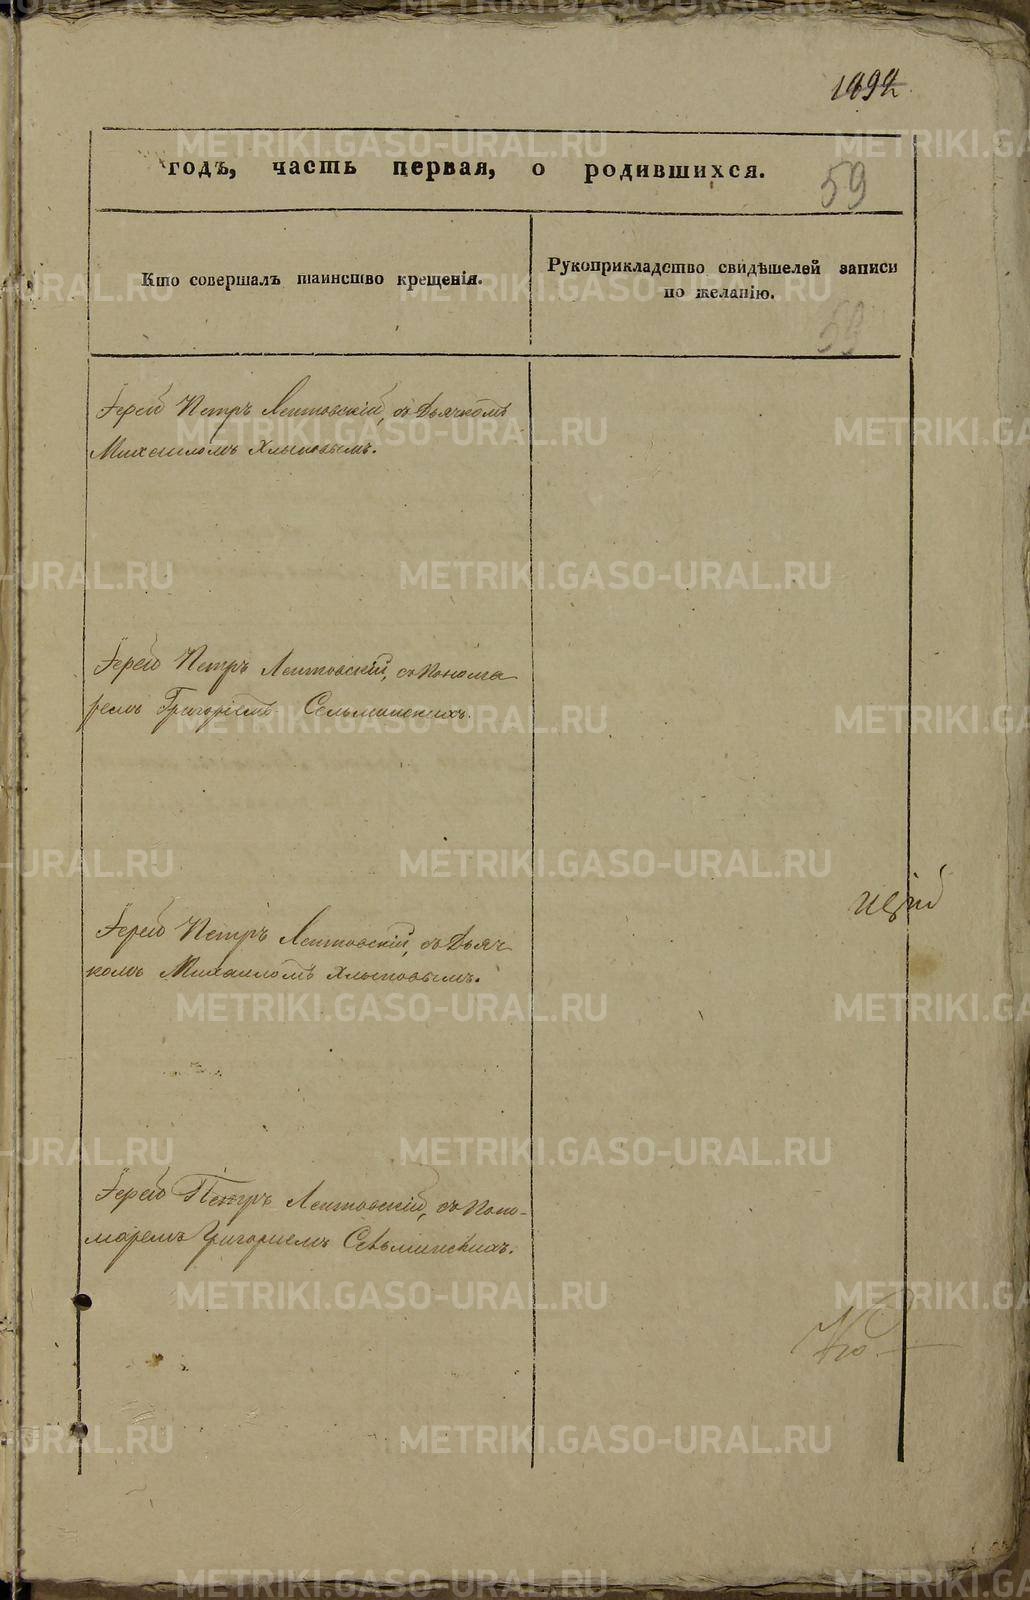 1892
годъ, часть первая, о родившихся.
59
Кто совершалъ таинство крещенія.
Рукоприкладство свидѣтелей записи
по желанію.
59
Іерей Петръ Лептовскій, съ Дьячкомъ
Михаиломъ Хлыновымъ.
Іерей Петръ Лептовскій, съ Понома
ремъ Григоріемъ Сельминскихъ.
Іерей Петръ Лептовскій, съ Дьяч
комъ Михаиломъ Хлыновымъ.
Іерей Петръ Лептовскій, съ Поно-
маремъ Григоріемъ Сельминскихъ.
METRIKI.GASO-URAL.RU